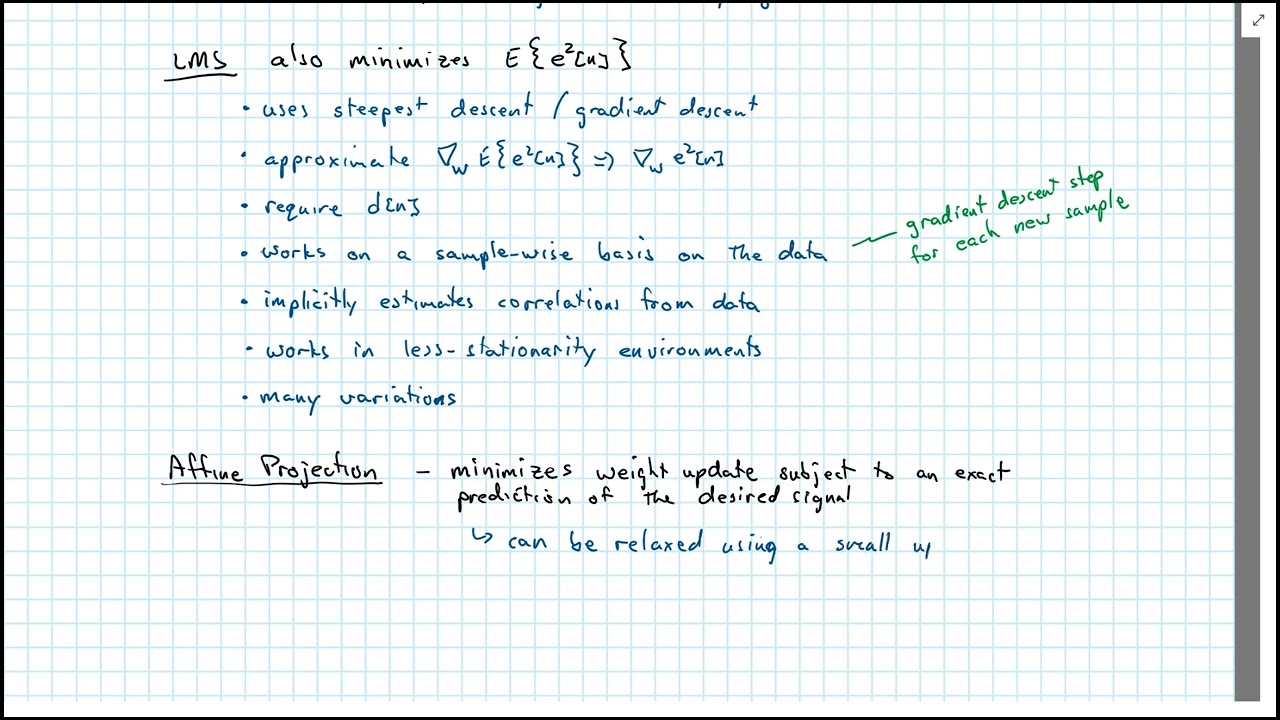 LMS also minimizes E{e²[n]}
• uses steepest descent / gradient descent
• approximate ∇_W E{e²[n]} => ∇_W e²[n]
• require d[n]
• works on a sample-wise basis on the data
gradient descent step
for each new sample
• implicitly estimates correlations from data
• works in less-stationarity environments
• many variations
Affine Projection – minimizes weight update subject to an exact
prediction of the desired signal
↳ can be relaxed using a small up